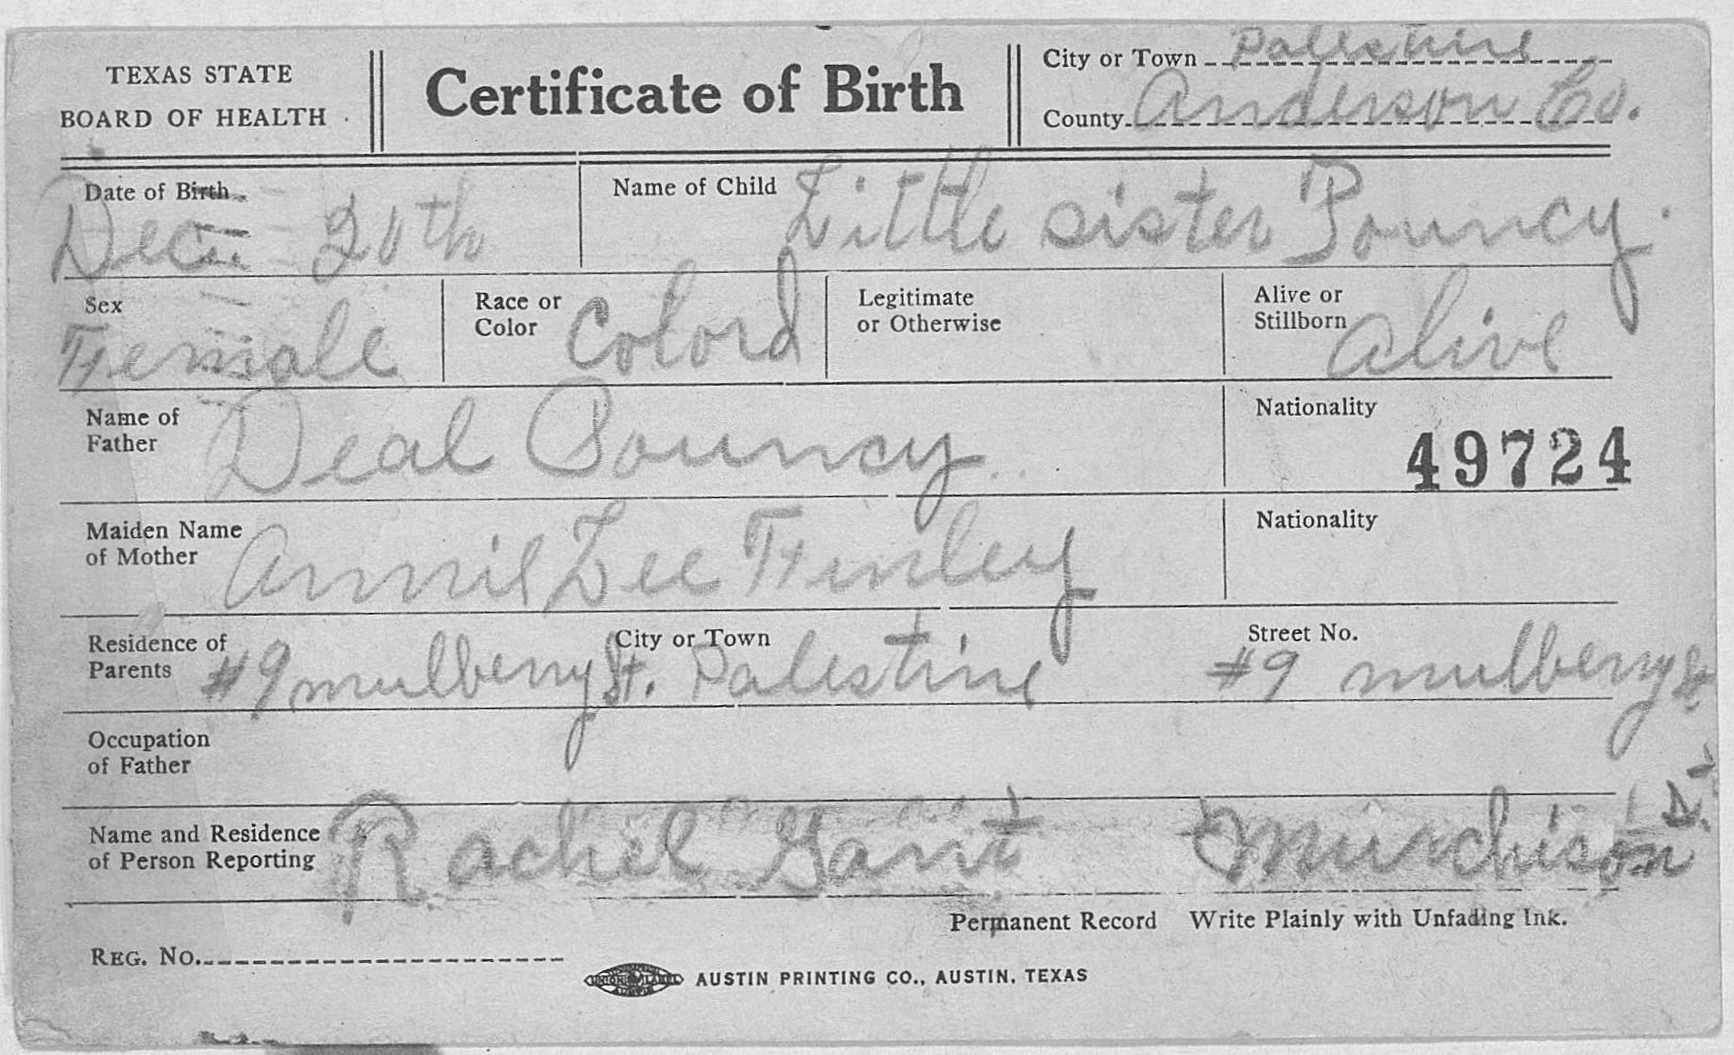 TEXAS STATE
BOARD OF HEALTH
Certificate of Birth
City or Town Palestine
County Anderson Co.
Date of Birth Dec 20th
Name of Child Little sister Pouncy.
Sex Female
Race or Color Colord
Legitimate or Otherwise
Alive or Stillborn alive
Name of Father Deal Pouncy
Nationality
49724
Maiden Name of Mother Annie Lee Finley
Nationality
Residence of Parents #9 mulberry St.
City or Town Palestine
Street No. #9 mulberry St
Occupation of Father
Name and Residence of Person Reporting Rachel Gant Murchison St.
Permanent Record Write Plainly with Unfading Ink.
REG. NO.
AUSTIN PRINTING CO., AUSTIN, TEXAS